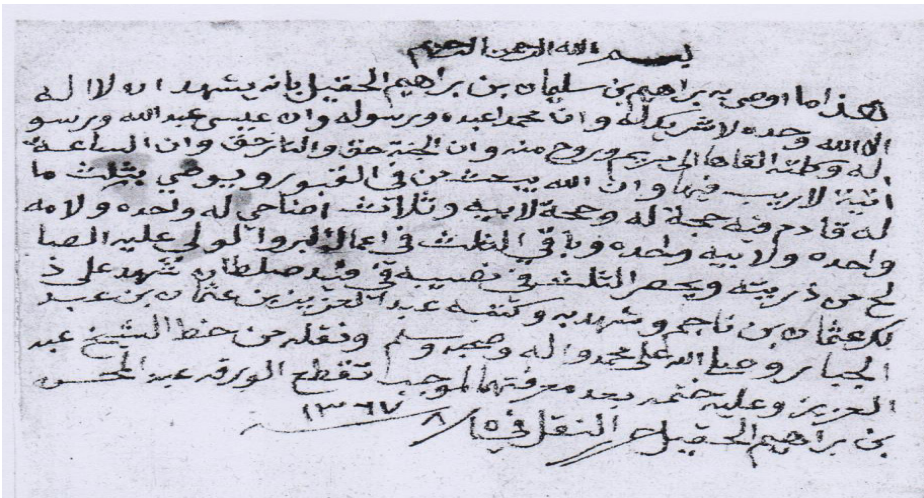 بسم الله الرحمن الرحيم
هذا ما اوصى به براهيم بن سليمان بن براهيم الحقيل بانه يشهد ان لا اله
الا الله وحده لا شريك له وان محمد اعبده ورسوله وان عيسى عبد الله ورسو
له وكلمته القاها الى مريم وروح منه وان الجنة حق والنار حق وان الساعة
اتية لا ريب فيها وان الله يبعث من في القبور ويوصي بثلث ما
له قادم فيه حجة له وحجة لابيه وثلاث اضاحي له وحده ولامه
واحده ولابيه واحده وباقي الثلث في اعمال البر والولي عليه الصا
لح من ذريته ويحصر الثلث في نصيبه في صلطانه شهد على ذ
لك عثمان بن ناجم وشهد به وكتبه عبد العزيز بن عثمان بن عبد
الجبار وصلى الله على محمد واله وصحبه وسلم ونقله من خط الشيخ عبد
العزيز وعليه ختمه بعد معرفتهما لموجب تقطع الورقه عبد المحسن
بن براهيم الحقيل حرر النقل في ١٥ / ٨ / ١٣٦٧